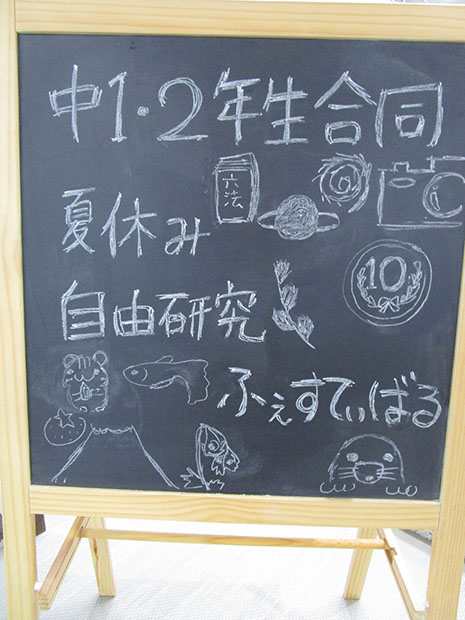 中1・2年生合同
六法
夏休み
10
自由研究
ふぇすてぃばる